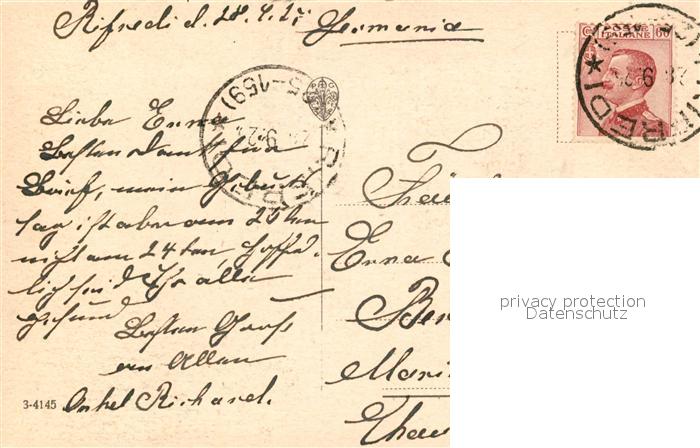 Rifredi d. 28.9.25 Germania
POSTE ITALIANE
C 60
RIFREDI
Liebe Erna
Besten Dank für
Brief, mein Geburts
tag ist aber am 25ten
nicht am 24ten, hoffe
lich seid Ihr alle
gesund
Besten Gruss
an Allen
Onkel Richard.
Fräu
Erna
Ber
Mari
3-4145
privacy protection
Datenschutz